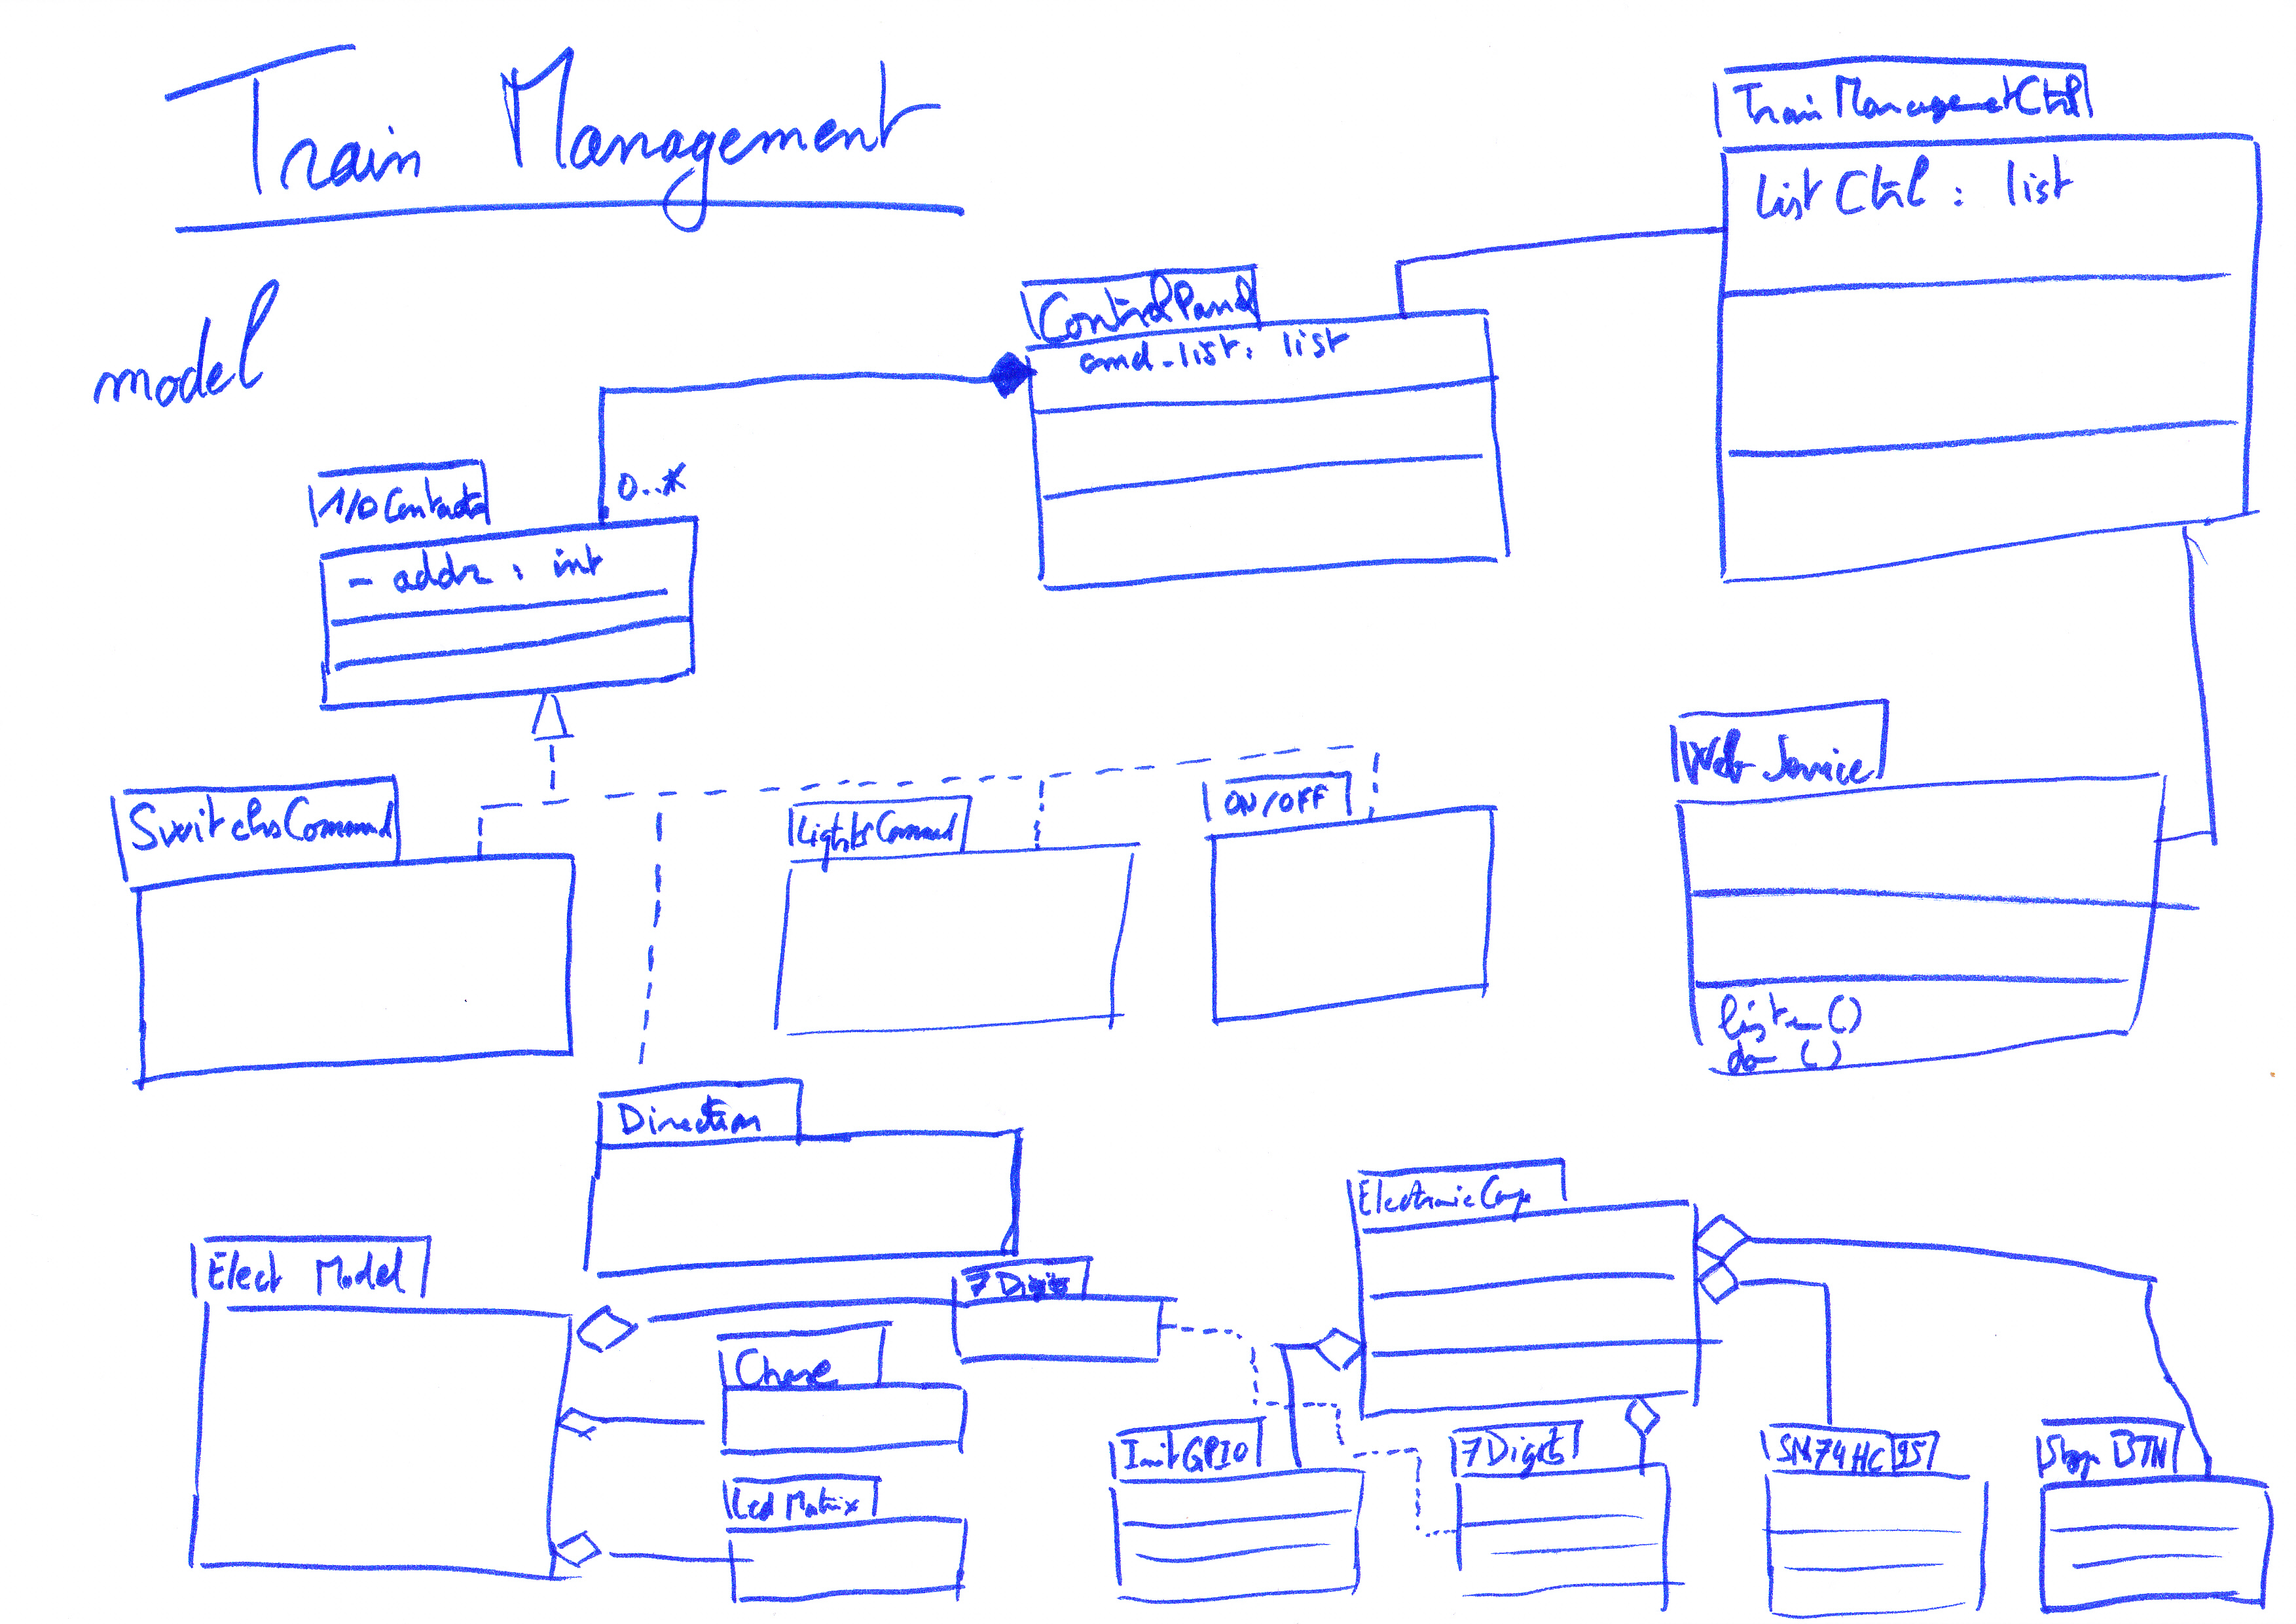 Train Management
model
TrainManagemetCtrl
listCtrl : list
ControlPanel
cmd_list: list
0..*
I/O Contacts
- addr : int
SwitchsCommand
LightsCommand
ON/OFF
Web Service
listen()
do ()
Direction
Elect Model
7 Digits
Chase
Led Matrix
ElectronicComp
InitGPIO
7 Digits
SN74HC
BTN